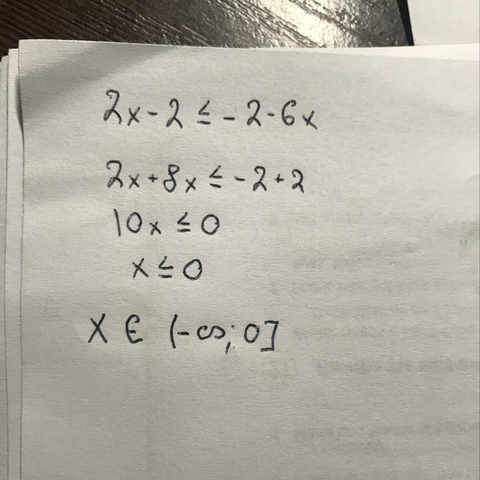 2x - 2 ≤ - 2 - 6x
2x + 8x ≤ - 2 + 2
10x ≤ 0
x ≤ 0
x ∈ (-∞; 0]